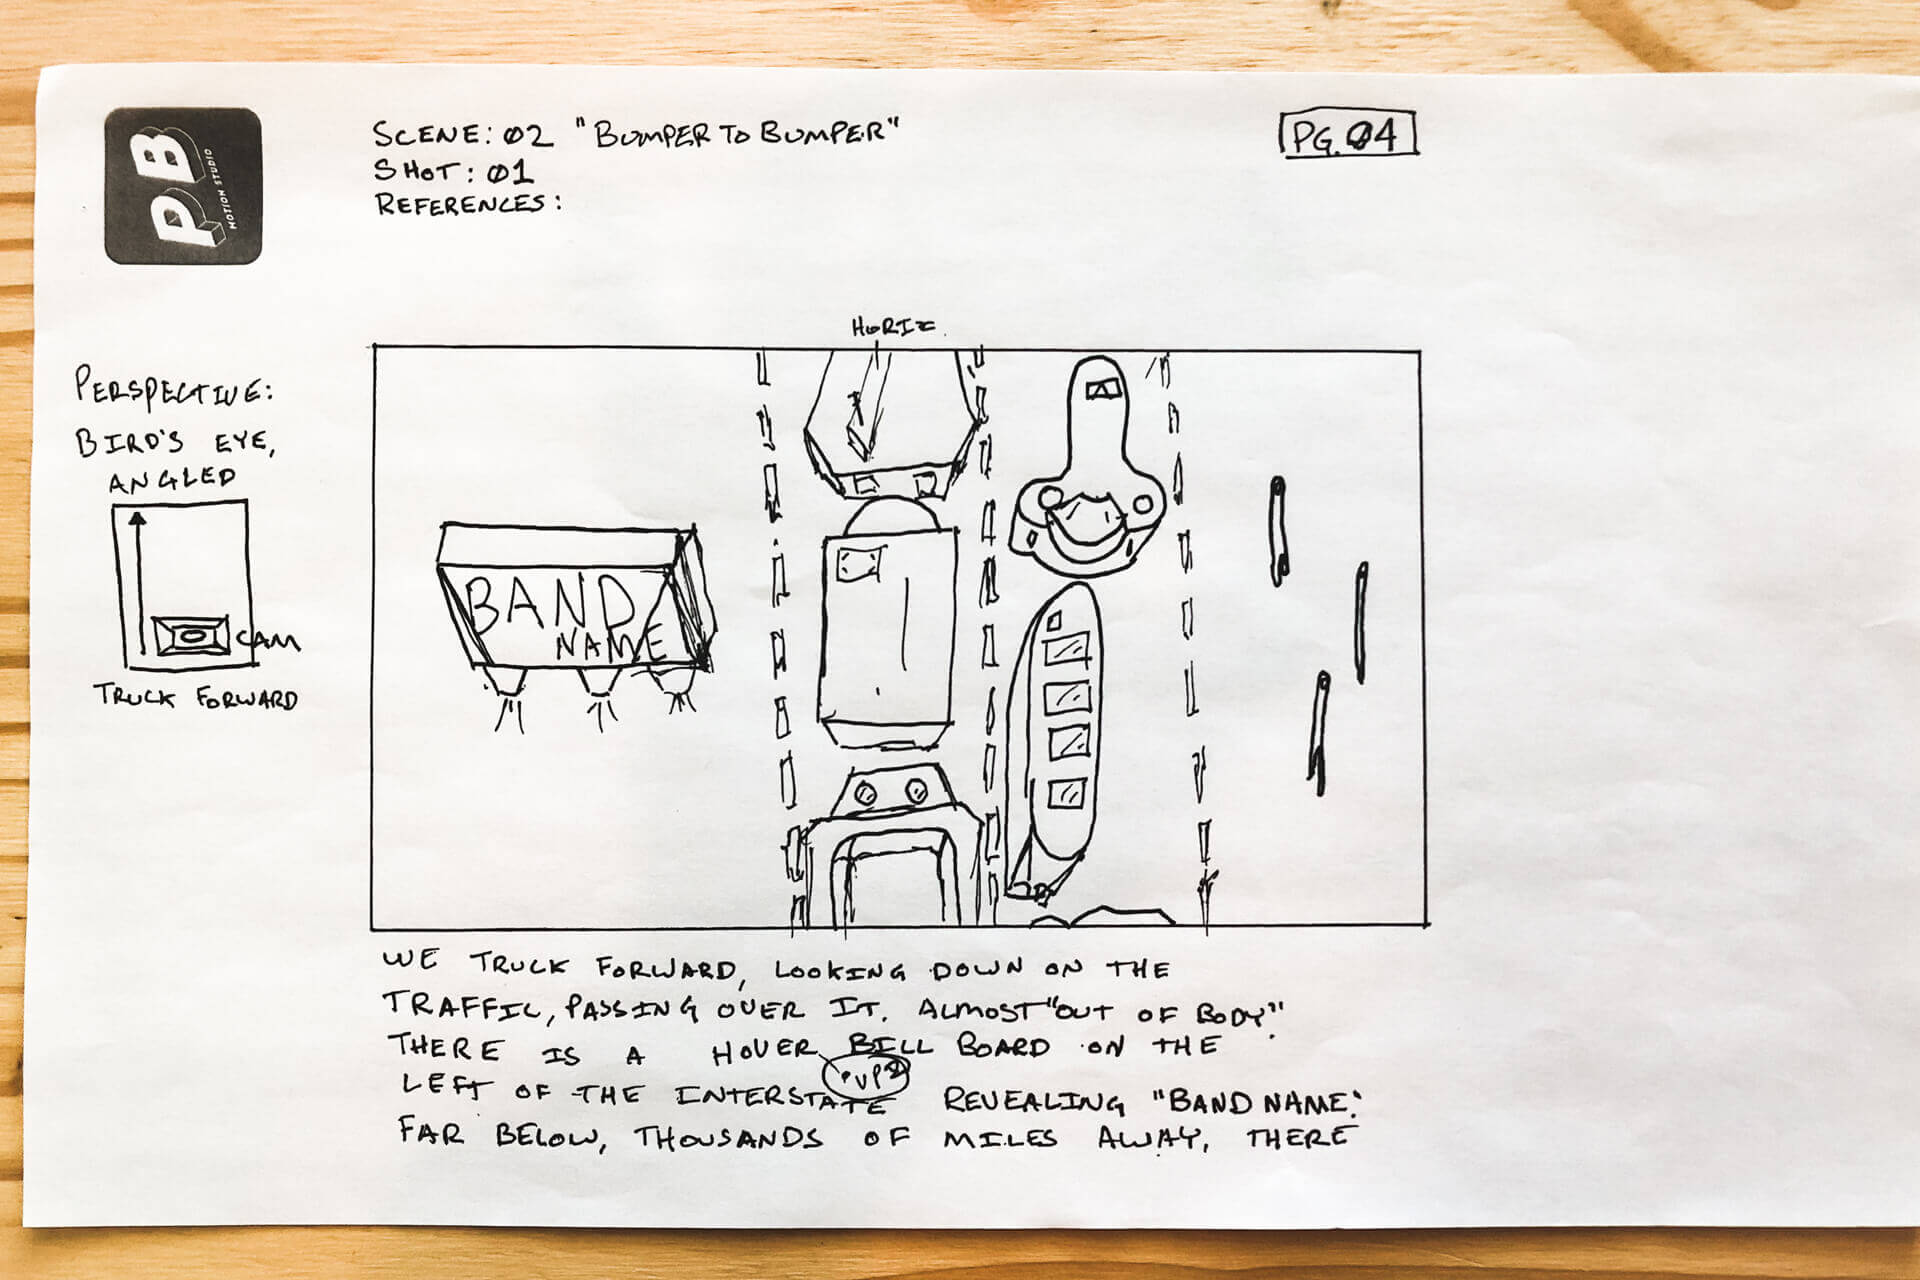 PB
MOTION STUDIO
SCENE: 02 "BUMPER TO BUMPER"
SHOT: 01
REFERENCES:
PG. 04
PERSPECTIVE:
BIRD'S EYE,
ANGLED
CAM
TRUCK FORWARD
HORIZ.
BAND
NAME
WE TRUCK FORWARD, LOOKING DOWN ON THE
TRAFFIC, PASSING OVER IT. ALMOST "OUT OF BODY"
THERE IS A HOVER BILL BOARD ON THE
LEFT OF THE INTERSTATE REVEALING "BAND NAME".
FAR BELOW, THOUSANDS OF MILES AWAY, THERE